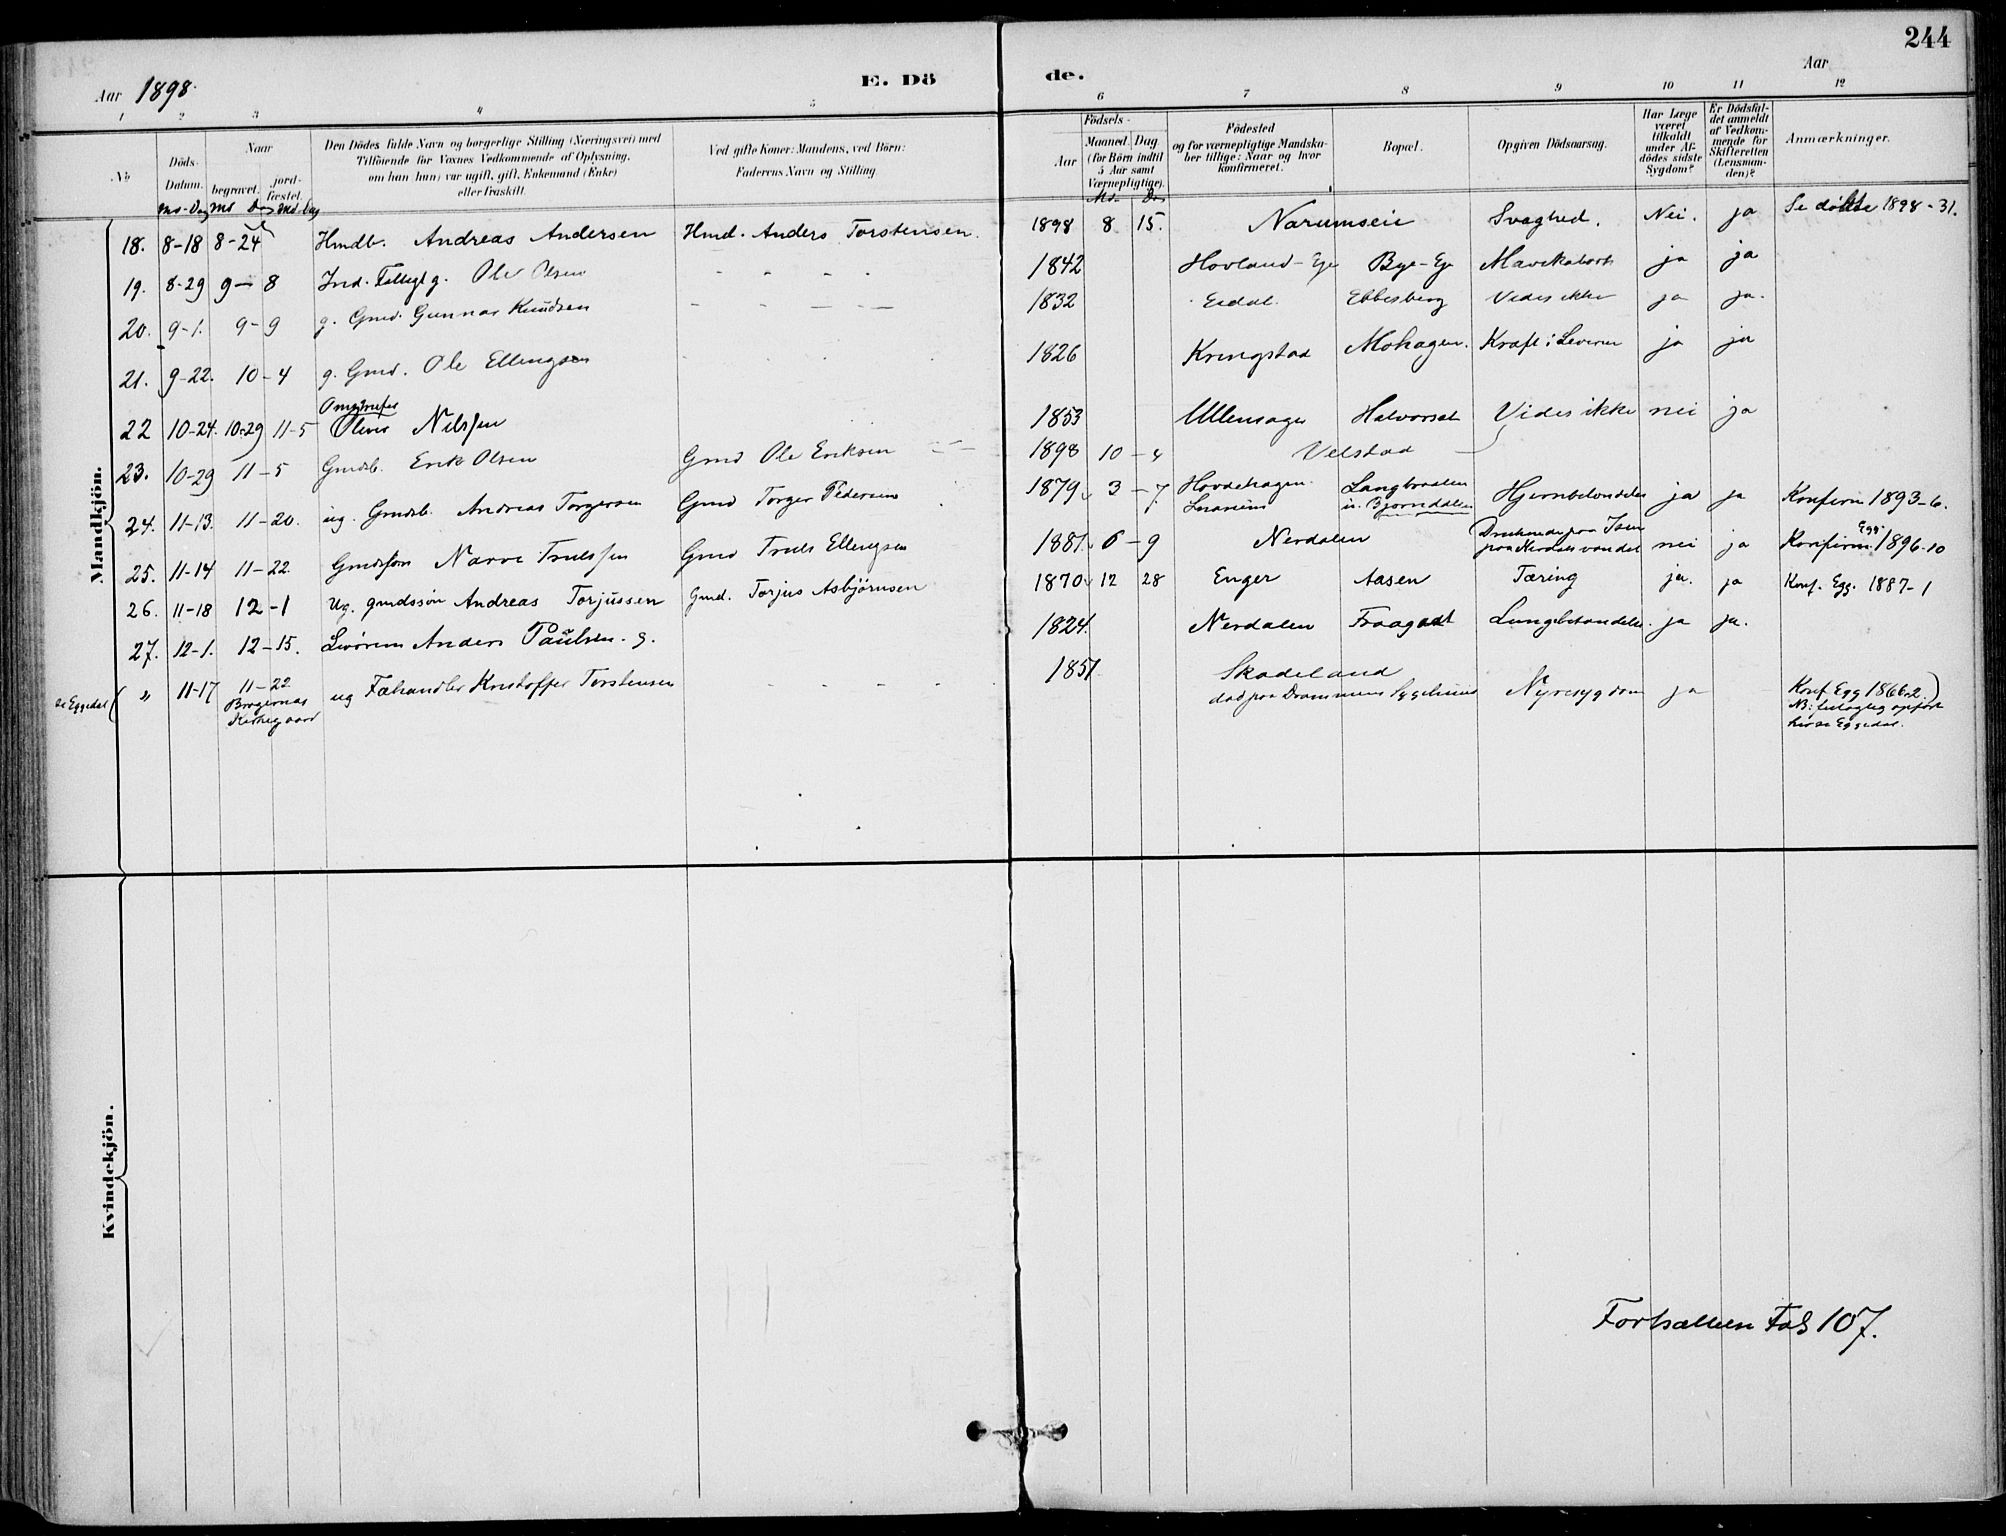 244
Aar 1898.
E. Dö
de.
Aar
1 2 3 4 5 6 7 8 9 10 11 12
No
Döds-
Datum.
Naar
begravet.
jord-
fæstet.
Den Dödes fulde Navn og borgerlige Stilling (Næringsvei) med
Tilföiende for Voxnes Vedkommende af Oplysning,
om han (hun) var ugift, gift, Enkemand (Enke)
eller fraskilt.
Ved gifte Koner: Mandens, ved Börn:
Faderens Navn og Stilling.
Födsels-
Aar
Maaned. Dag
(for Börn indtil
5 Aar samt
Værnepligtige).
Födested
og for værnepligtige Mandska-
ber tillige: Naar og hvor
konfirmeret.
Bopæl.
Opgiven Dödsaarsag.
Har Læge
været
tilkaldt
under Af-
dödes sidste
Sygdom?
Er Dödsfal-
det anmeldt
af Vedkom-
mende for
Skifteretten
(Lensman-
den)?
Anmærkninger.
Md - Dag Md Dag Md. Dag
Md. Dag
Mandkjön.
18. 8-18 8-24 Hmdb. Andreas Andersen Hmd. Anders Torstensen. 1898 8 15. Narumseie Svaghed. Nei. ja Se döbte 1898-31.
19. 8-29 9-8 Ind. Fattiglg. Ole Olsen - - - - 1842 Hovland-Eje Bye-Eje Mavekatarh ja ja
20. 9-1. 9-9 g. Gmd. Gunnar Knudsen - - - - 1832 Eidal Ebbesberg Vides ikke ja ja.
21. 9-22. 10-4 g. Gmd. Ole Ellingsen 1826 Kringstad Mohagen. Kræft i Leveren ja ja
22 10-24. 10-29 11-5 Oliver Nilssen 1853 Ullensager Halvorset Vides ikke nei ja
23. 10-29 11-5 Gmdsb. Erik Olsen Gmd Ole Eriksen 1898 10-4 Velstad
24. 11-13. 11-20. ug. Gmdsb. Andreas Torgersen Gmd Torger Pedersen 1879 3-7. Hovdehagen Langbraaten
n. Bjørndalen Hjernebetændelse ja ja Konfirm 1893-6.
25. 11-14 11-22. Gmdssøn Narve Trulssen Gmd Truls Ellingsen 1881. 6-9 Nerdalen Druknede paa Isen
paa Nerdalsvandet nei ja Konfirm. Egg. 1896-10
26. 11-18 12-1 Ug. gmdssön Andreas Torjussen Gmd. Torjus Asbjörnsen 1870 12 28 Enger Aasen Tæring ja. ja Konf. Egg. 1887-1
27. 12-1. 12-15. Anders Paulsen. g. 1824. Nerdalen Fraagaat Lungebetændelse. ja ja.
se Eggedal ( " 11-17 11-22
Bragernæs
Kirkegaard ug Fæhandler Kristoffer Torstensen - - - - 1851 Skadeland
død paa Drammens Sygehus Nyresygdom ja - Konf Egg 1866-2)
NB: opført
hos Eggedal.
Kvindekjön.
Fortsættes Fol 107.